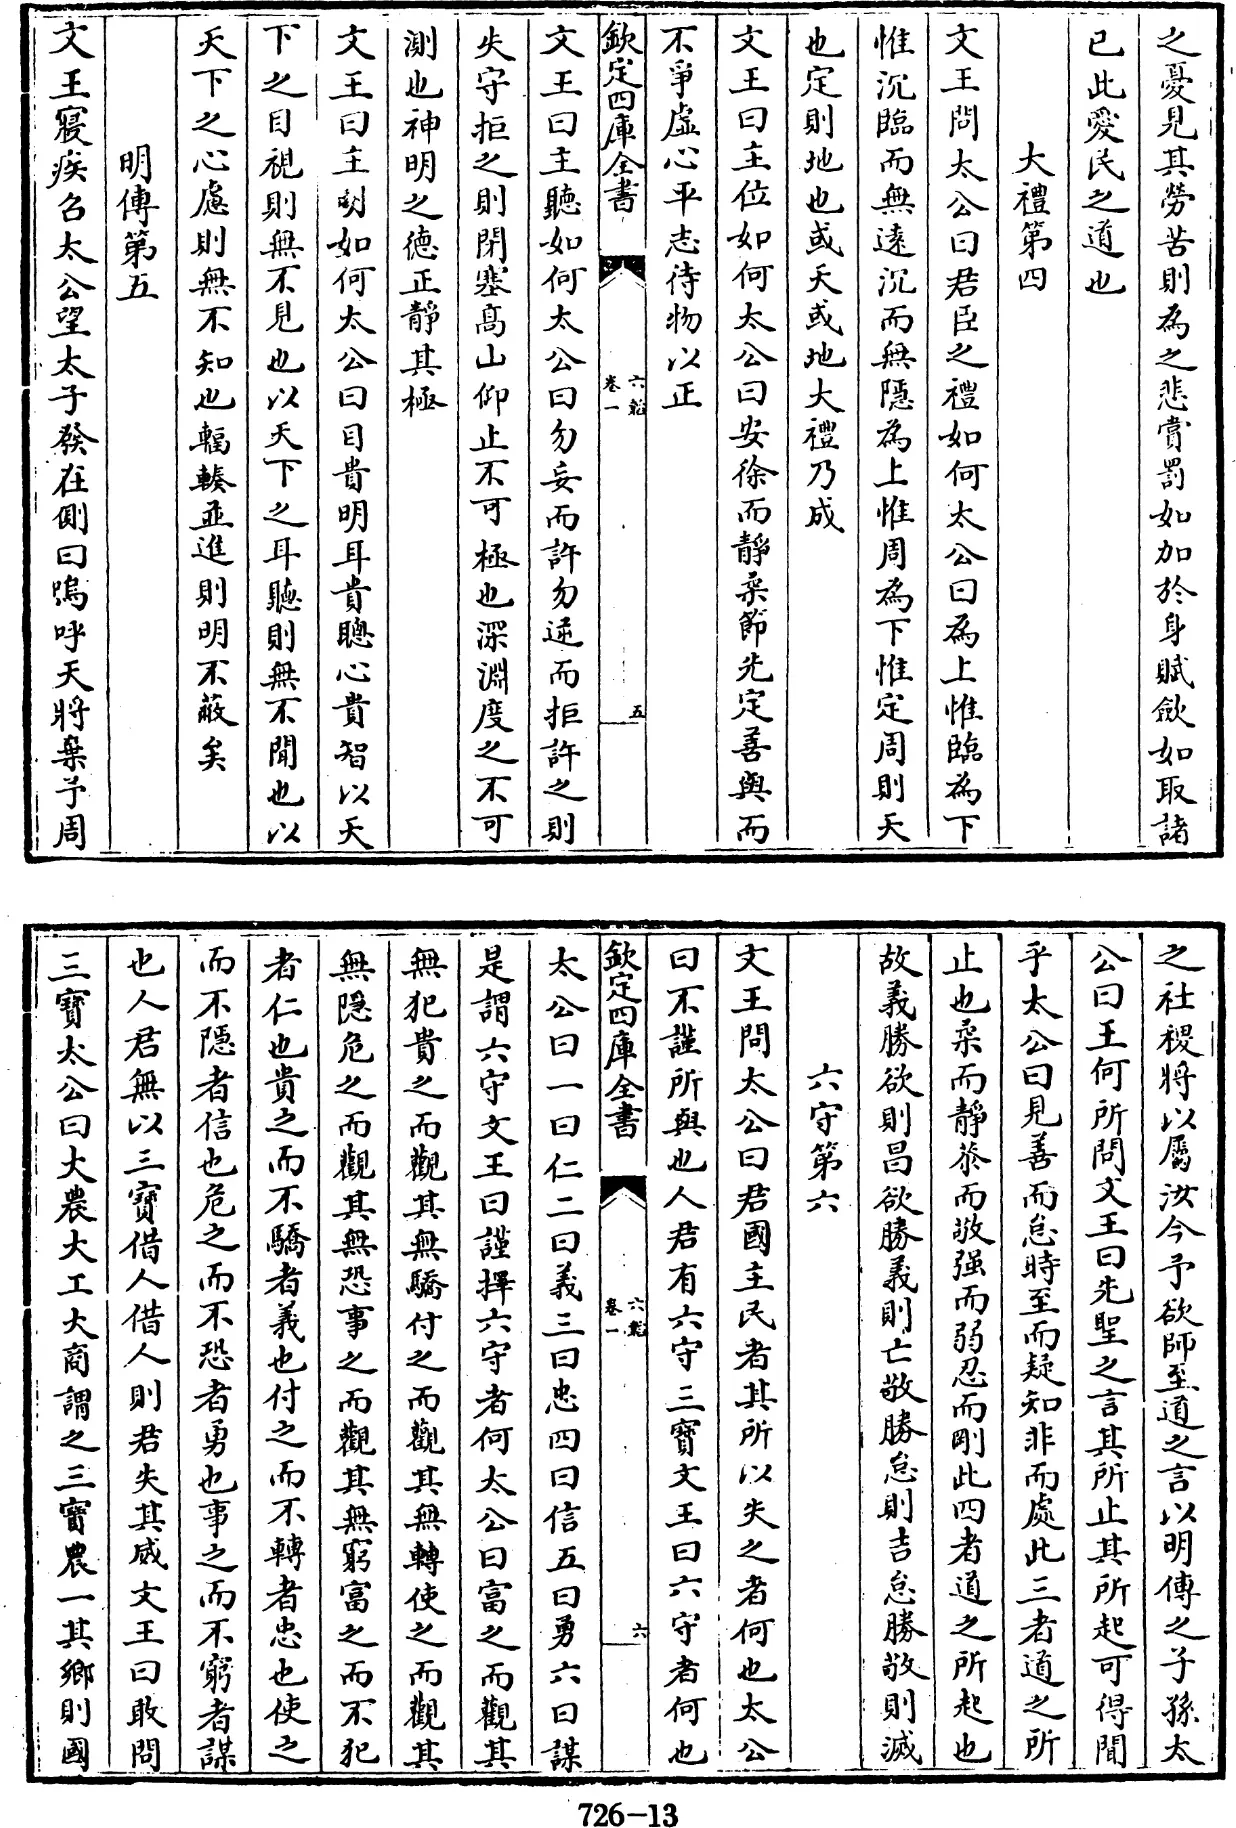 之憂見其勞苦則為之悲賞罰如加於身賦歛如取諸
已此愛民之道也
大禮第四
文王問太公曰君臣之禮如何太公曰為上惟臨為下
惟沉臨而無逺沉而無隱為上惟周為下惟定周則天
也定則地也或天或地大禮乃成
文王曰主位如何太公曰安徐而靜柔節先定善與而
不爭虛心平志待物以正
欽定四庫全書
六韜
卷一
五
文王曰主聽如何太公曰勿妄而許勿逆而拒許之則
失守拒之則閉塞髙山仰止不可極也深淵度之不可
測也神明之德正靜其極
文王曰主明如何太公曰目貴明耳貴聰心貴智以天
下之目視則無不見也以天下之耳聽則無不聞也以
天下之心慮則無不知也輻輳並進則明不蔽矣
明傳第五
文王寢疾召太公望太子發在側曰嗚呼天將棄予周
之社稷將以屬汝今予欲師至道之言以明傳之子孫太
公曰王何所問文王曰先聖之言其所止其所起可得聞
乎太公曰見善而怠時至而疑知非而處此三者道之所
止也柔而靜恭而敬强而弱忍而剛此四者道之所起也
故義勝欲則昌欲勝義則亡敬勝怠則吉怠勝敬則滅
六守第六
文王問太公曰君國主民者其所以失之者何也太公
曰不謹所與也人君有六守三寶文王曰六守者何也
欽定四庫全書
六韜
卷一
六
太公曰一曰仁二曰義三曰忠四曰信五曰勇六曰謀
是謂六守文王曰謹擇六守者何太公曰富之而觀其
無犯貴之而觀其無驕付之而觀其無轉使之而觀其
無隱危之而觀其無恐事之而觀其無窮富之而不犯
者仁也貴之而不驕者義也付之而不轉者忠也使之
而不隱者信也危之而不恐者勇也事之而不窮者謀
也人君無以三寶借人借人則君失其威文王曰敢問
三寶太公曰大農大工大商謂之三寶農一其鄉則國
726-13